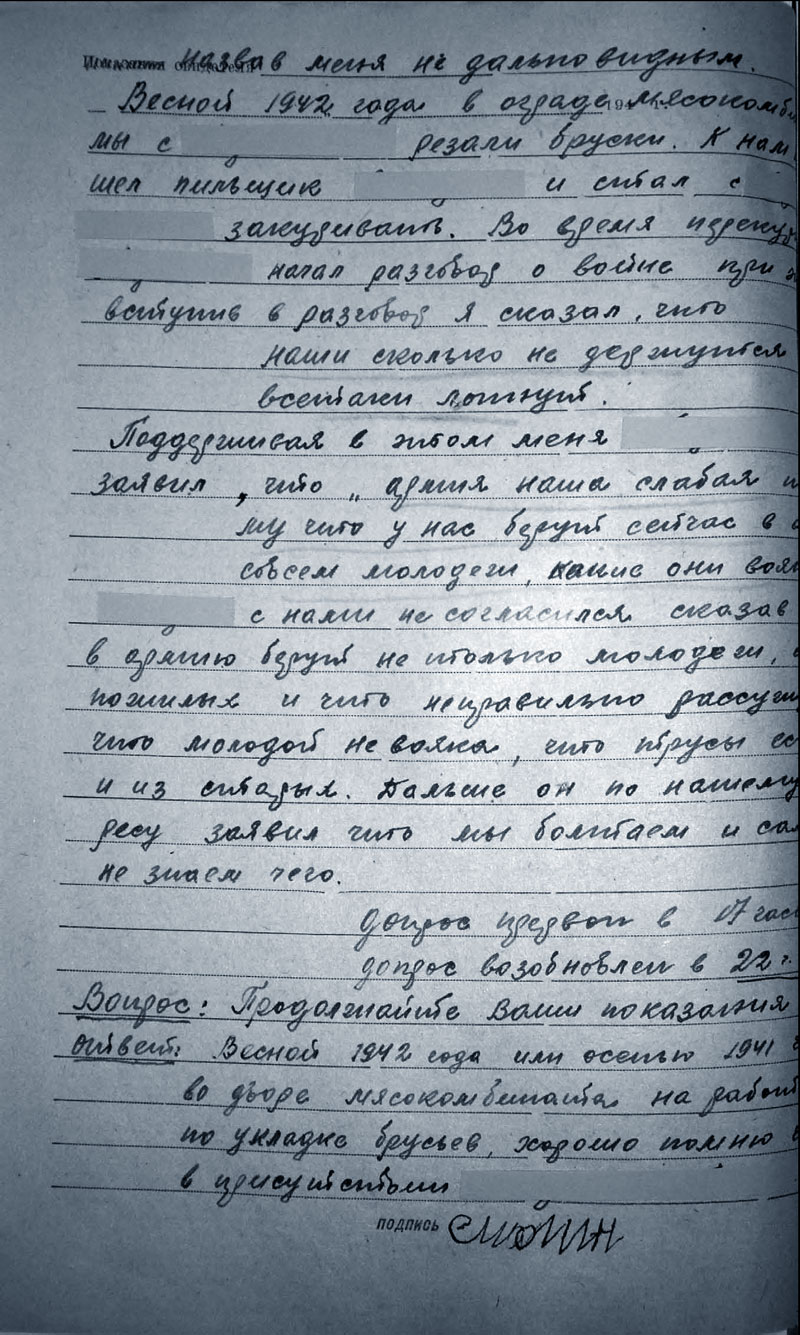 назвав меня не дальновидным.
Весной 1942 года в ограде мясокомби
мы с резали бруски. К нам
шел пильщик и стал с
закуривать. Во время переку
начал разговор о войне при
вступив в разговор я сказал, что
наши сколько не держутся
всетаки лопнут.
Поддерживая в этом меня
заявил, что „ армия наша слабая
му что у нас берут сейчас в
совсем молодежи, какие они вояк
с нами не согласился сказав
в армию берут не только молодежи,
пожилых и что неправильно рассуж
что молодой не вояка, что трусы ес
и из старых. Дальше он по нашему
ресу заявил что мы болтаем и сам
не знаем чего.
допрос прерван в 17 час
допрос возобновлен в 22 ч.
Вопрос: Продолжайте Ваши показания
Ответ: Весной 1942 года или осенью 1941
во дворе мясокомбината на работ
по укладке брусьев, хорошо помню
в присутствии
подпись